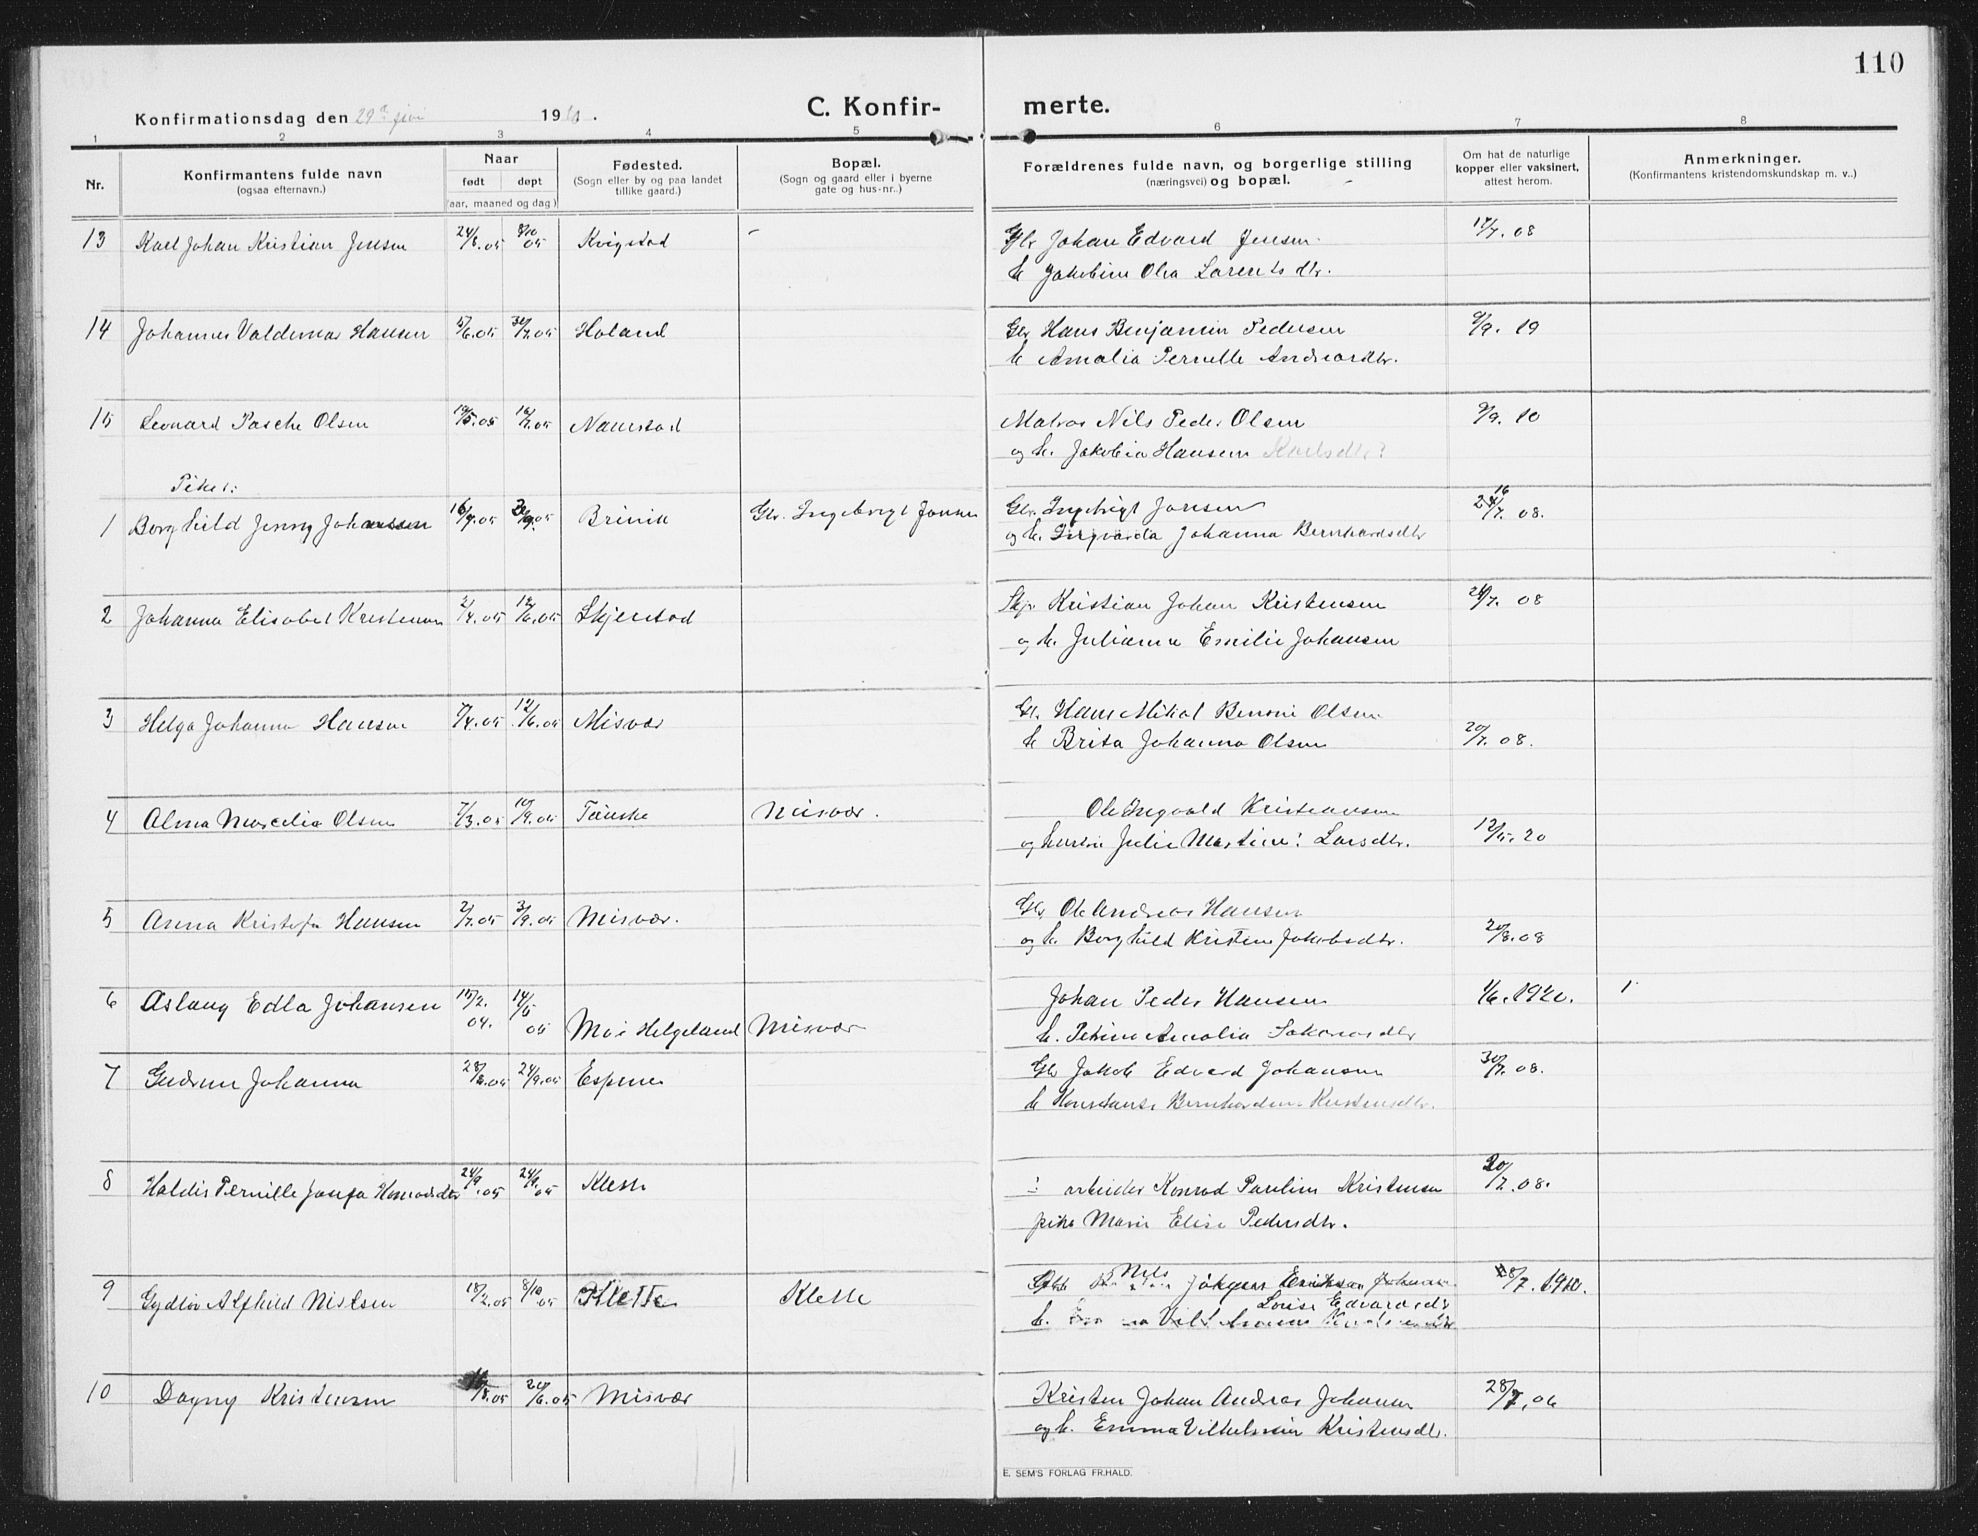 110
Konfirmationsdag den 29de juni 19
C. Konfirmerte.
1 2 3 4 5 6 7 8
Nr. Konfirmantens fulde navn (ogsaa efternavn.) Naar født døpt (aar, maaned og dag) Fødested. (Sogn eller by og paa landet tillike gaard.) Bopæl. (Sogn og gaard eller i byerne gate og hus-nr..) Forældrenes fulde navn, og borgerlige stilling (næringsvei) og bopæl. Om hat de naturlige kopper eller vaksinert, attest herom. Anmerkninger. (Konfirmantens kristendomskundskap m. v..)
13 Karl Johan Kristian Jensen 24/8.05 8/10 05 Kvigstad - Gbr Johan Edvard Jensen 17/7.08
h Jakobine Olea Larents dtr.
14 Johannes Valdemar Hansen 5/6.05 30/7.05 Holand Gbr Hans Benjamin Pedersen 9/9. 19
h Amalia Pernille Andreasdtr.
15 Leonard Pasche Olsen 19/5.05 16/7.05 Naurstad Matros Nils Peder Olsen 9/9. 10
og h. Jakobia Hansen Karlsdtr?
Piker:
1 Borghild Jenny Johanssen 16/7.05 Brivik Gbr. Ingebrigt Jonsen Gbr. Ingebrigt Jonsen 16 24/7. 08.
og h. Ingvarda Johanna Bernhardsdtr
2 Johanna Elisabet Kristensen 2/4.05 12/6.05 Skjerstad Skp. Kristian Johan Kristensen 26/7. 08
og h. Julianna Emilie Johansen
3 Helga Johanna Hansen 7/4.05 12/6.05 Misvær Gbr Hans Mikal Benoni Olsen
h Brita Johanna Olsen 20/7. 08.
4 Alma Marcelia Olsen 7/3.05 10/9.05 Fauske Misvær. Ole Ingvald Kristensen
og hustru Julie Martine: Larsdtr. 12/5. 20
5 Anna Kristofa Hansen 2/7.05 3/9.05 Misvær. Gbr Ole Andreas Hansen
og h. Borghild Kristine Jakobsdtr. 20/8.08
6 Aslaug Edla Johansen 15/2. 04. 14/5 05 Mo i Helgeland Misvær Johan Peder Hansen 1/6.1920. 1
h. Petrine Amalia Sakariasdtr
7 Gudrun Johanna 28/8.05 24/9.05 Espenes Gbr Jakob Edvard Johansen 30/7.08.
h Konstanse Bernhardine Kristensdtr.
8 Haldis Pernille Josefa Konradsdtr 24/9.05 24/9.05 Klette arbeider Konrad Paulin Kristensen 20/7.08.
pike Marie Elise Pedersdtr.
9 Gydlov Alfhild Nilsen 18/2.05 8/10 05 Klette Klette Nils Johan Eriksen Johansen 28/7.1910.
h. Lovise Edvardsdtr
10 Dagny Kristensen /8.05 20/6.05 Misvær Kristen Johan Andreas Johansen 28/7.06
og h. Emma Vilhelmine Kristensdtr.
E. SEM'S FORLAG FR.HALD.